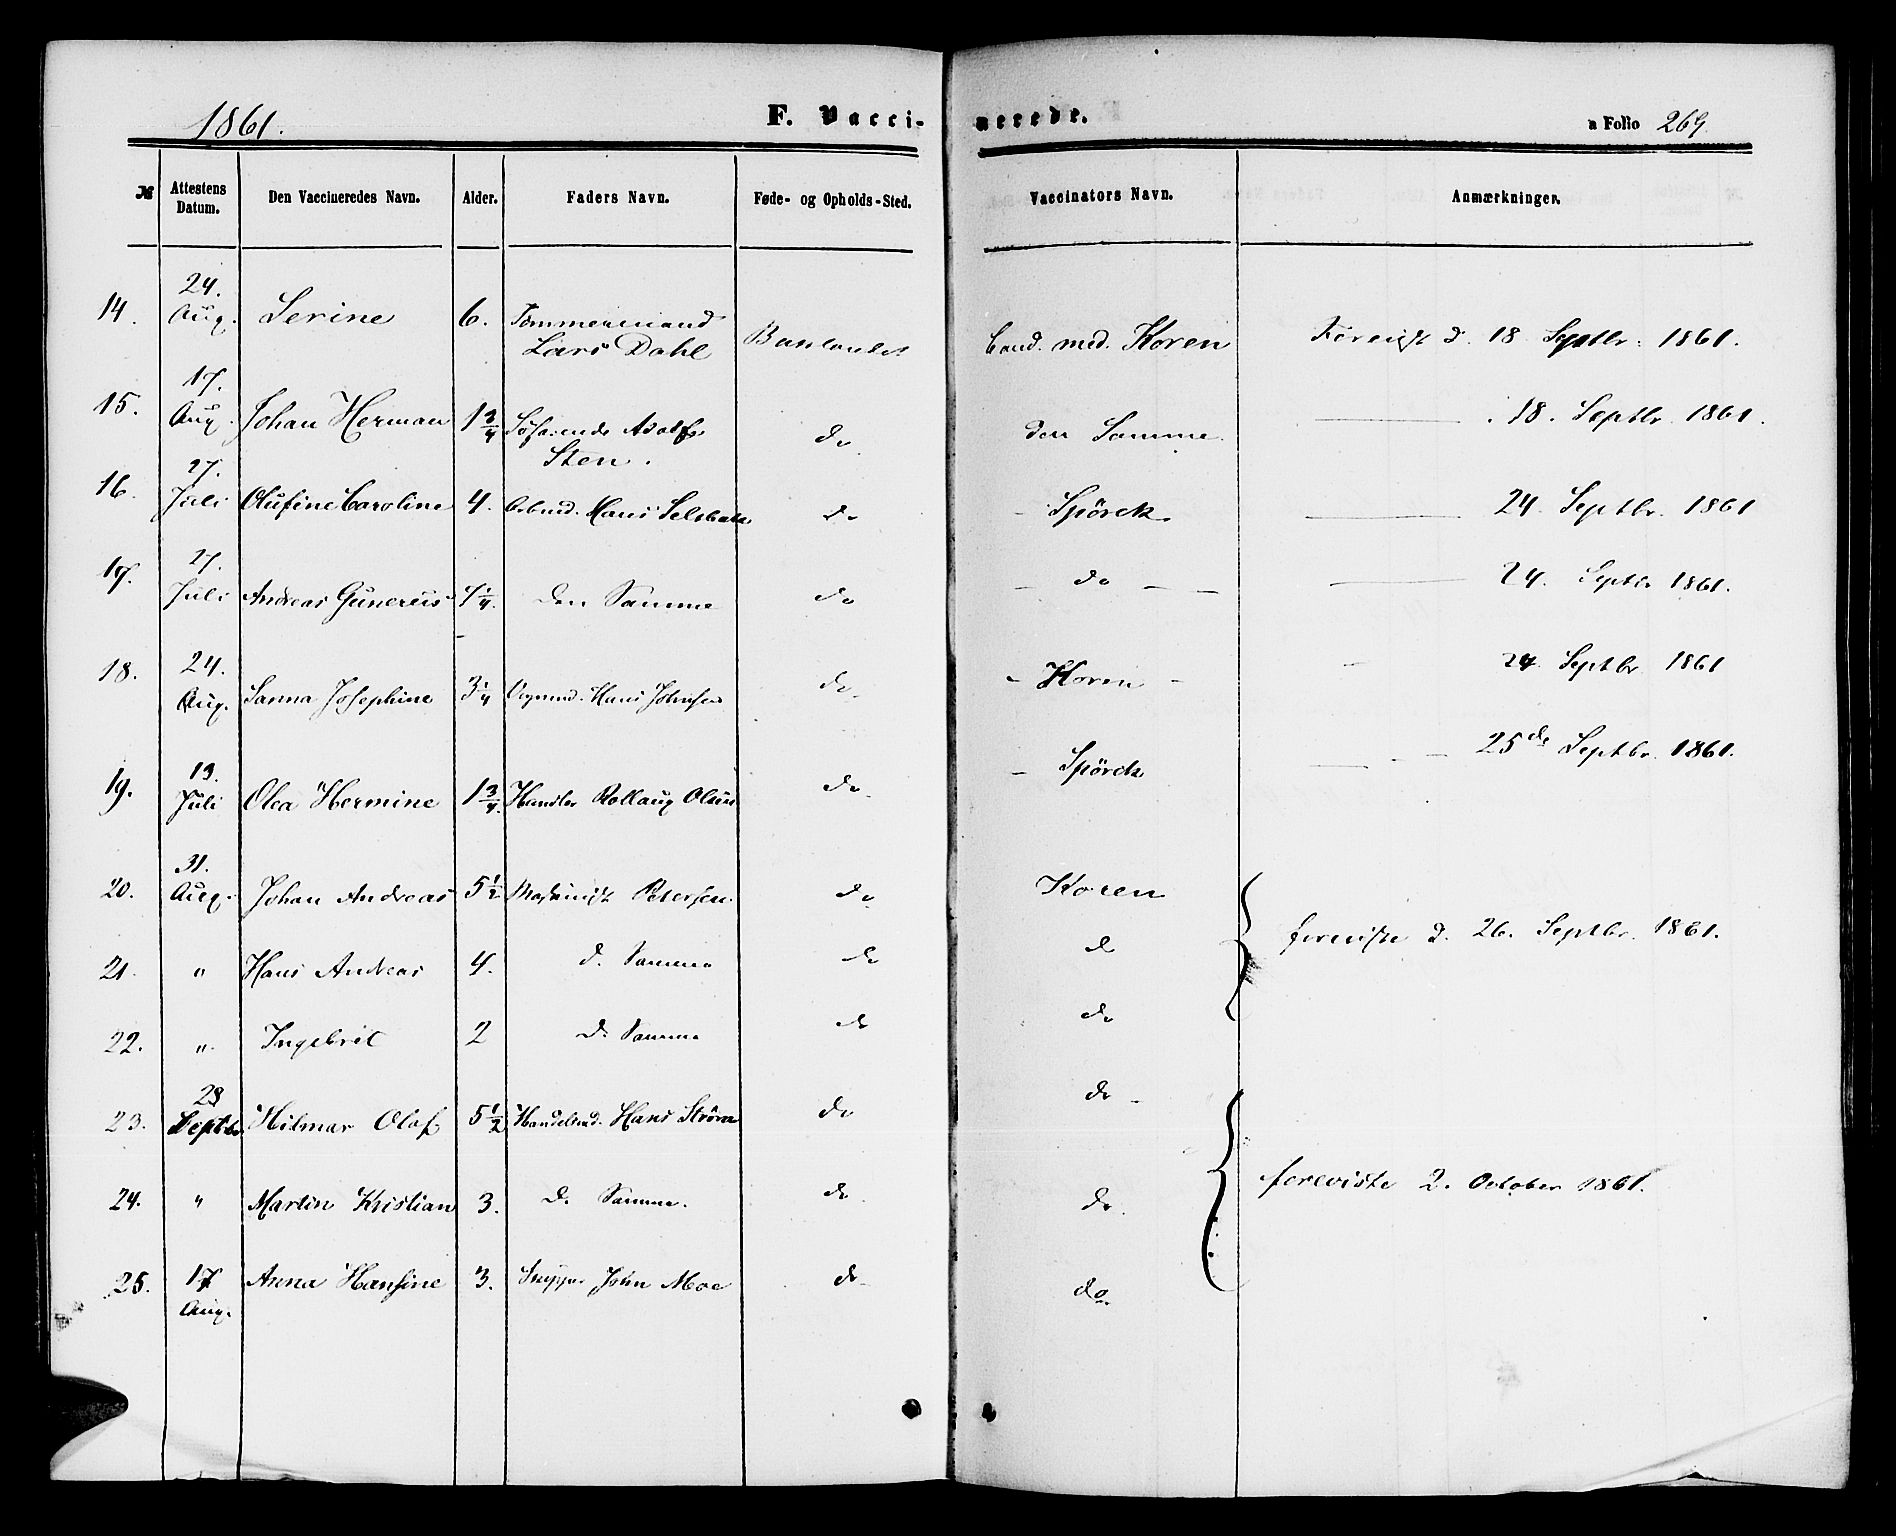 1861.
F. Vacci-
nerede.
a Folio 269
№ Attestens Datum. Den Vaccineredes Navn. Alder. Faders Navn. Føde- og Opholds-Sted. Vaccinators Navn. Anmærkninger.
14. 24. Aug. Serine 6. Tømmermand Lars Dahl Cand. med. Koren Forevist d. 18 Septbr. 1861.
15. 17. Aug. Johan Herman 1 3/4 Adolf Sten. do den Samme 18. Septbr. 1861.
16. 27. Juli Olufine Caroline 4. Hans do Spörck 24 Septbr. 1861
17. 27. Juli Andreas Gunerius 1/4. den Samme do do 24. Septbr 1861.
18. 24. Aug. Sanna Josephine 3 1/4 Hans Johnsen do Koren 24 Septbr 1861
19. 13. Juli Olea Hermine 1 3/4. Handler Rollaug Olsen do Spörck 25de Septbr. 1861.
20. 31. Aug. Johan Andreas 5 1/2 Maskinist Petersen do Koren
foreviste d. 26. Septbr. 1861.
21. " Hans Andreas 4. d. Samme do do
22. " Ingebrit 2 d. Samme do do
23. 28 Septbr. Hilmar Olaf 5 1/2 Handelsmd. Hans Strøm do do
24. " Martin Kristian 3. d. Samme. do do
foreviste 2. October 1861.
25. 17 Aug. Anna Hansine 3. John Moe do do